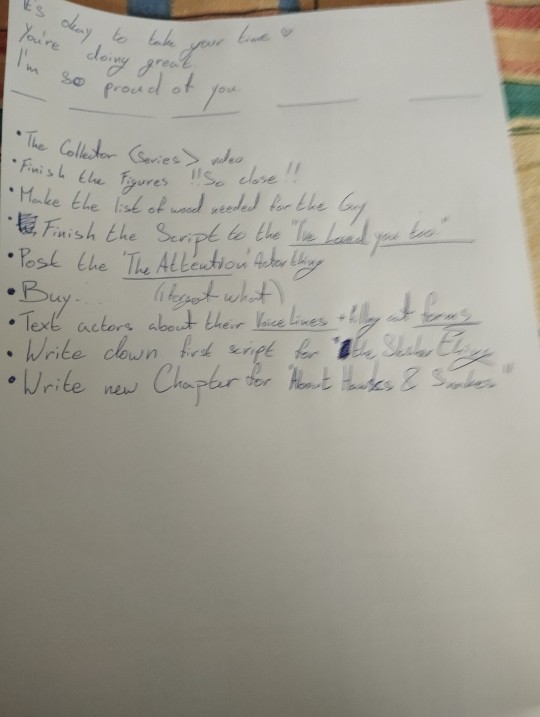 It's okay to take your time ♡
You're doing great
I'm so proud of you
• The Collector (series> video
• Finish the Figures !!So close!!
• Make the list of wood needed for the Guy
• Finish the Script to the "I've Loved you too"
• Post the 'The Attention' Actor thing
• Buy... (i forgot what)
• Text actors about their Voice Lines + filling out forms
• Write down first script for "the Slasher Thing
• Write new Chapter for "About Hawks & Snakes"